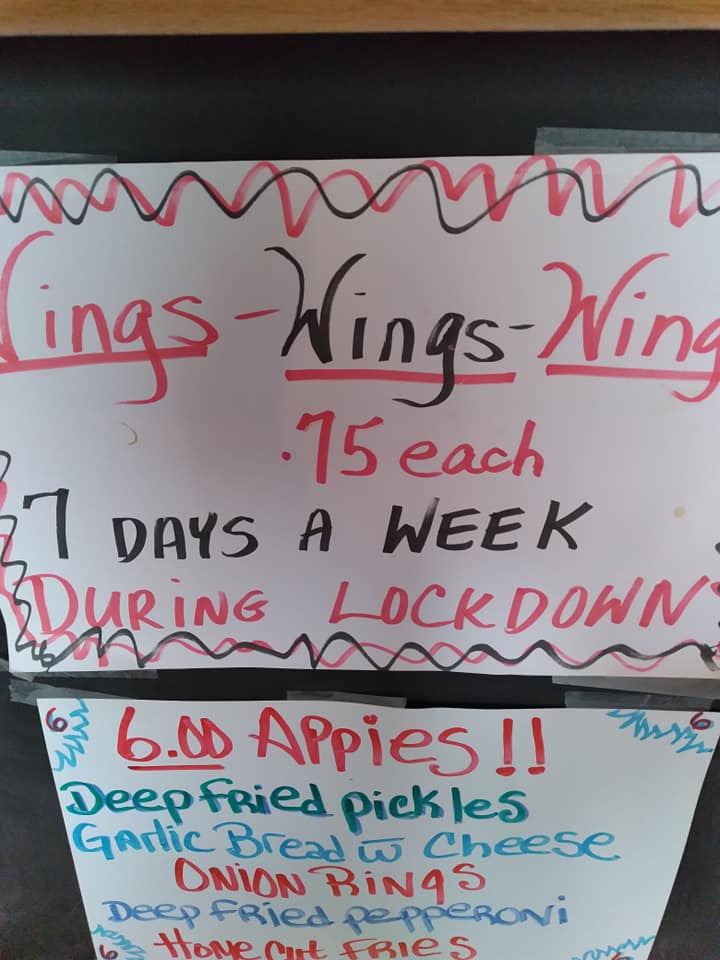 Wings - Wings - Wing
.75 each
7 DAYS A WEEK
DURING LOCKDOWN
6 6.00 Appies !! 6
Deep fried pickles
Garlic Bread w̅ Cheese
ONION RINGS
Deep fried pepperoni
6 Home cut fries 6